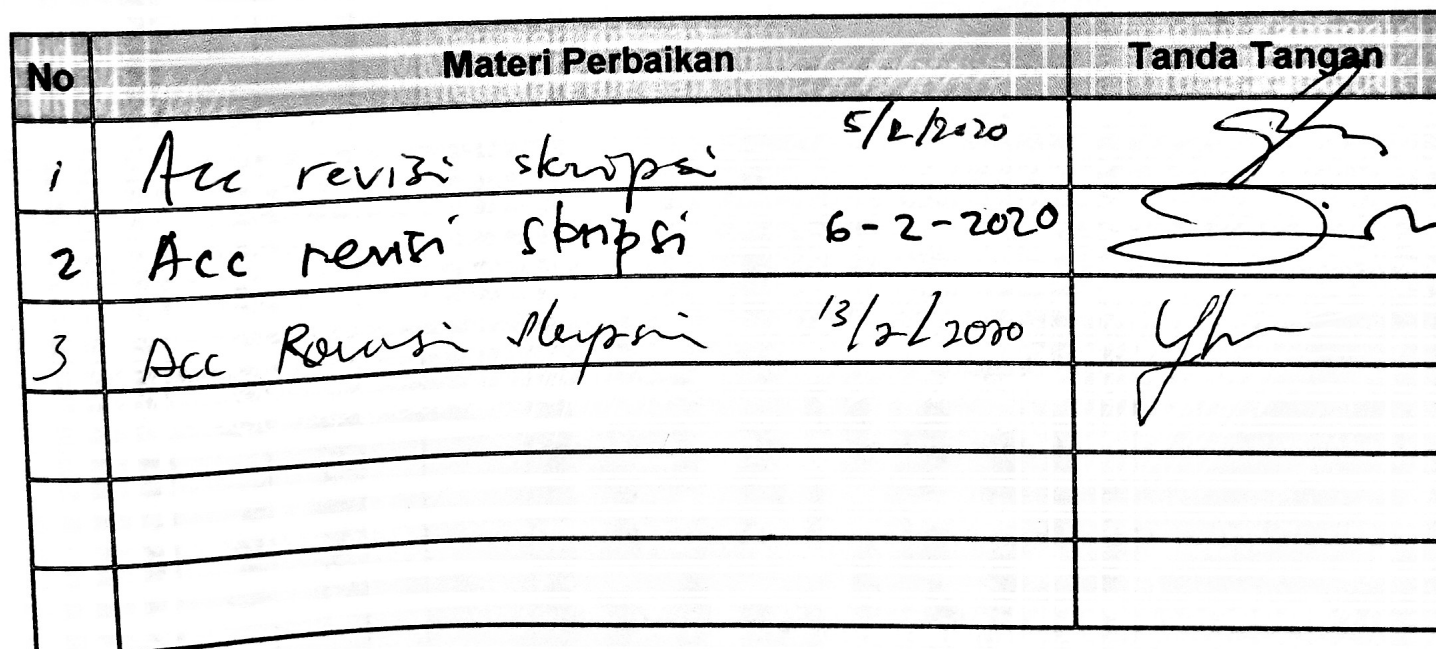 No Materi Perbaikan Tanda Tangan
1 Acc revisi skripsi 5/2/2020
2 Acc revisi skripsi 6-2-2020
3 Acc Revisi skripsi 13/2/2020